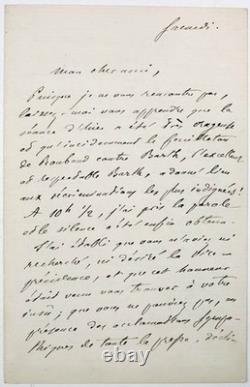 Samedi.
Mon cher ami,
Puisque je ne vous rencontre pas,
laissez-moi vous apprendre que la
séance d'hier a été très orageuse
et qu'incidemment le feuilleton
de Roubaud contre Barth, l'excellent
et respectable Barth, a donné lieu
aux récriminations les plus indignes!
A 10h 1/2, j'ai pris la parole
et le silence a été enfin obtenu.
J'ai établi que vous n'aviez ni
recherché, ni désiré la
présidence, et que cet honneur
était venu vous trouver à votre
insu; que vous ne pouviez pas, en
présence des acclamations sympa-
thiques de toute la presse, décli-